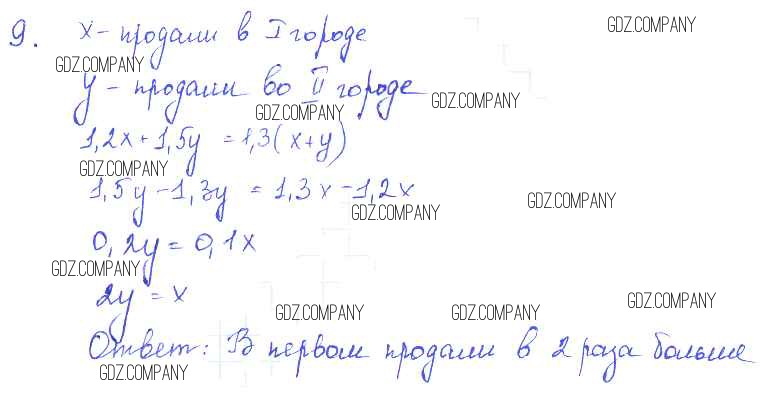 GDZ.COMPANY
9. x - продали в I городе
GDZ.COMPANY
y - продали во II городе
GDZ.COMPANY
GDZ.COMPANY
1,2x + 1,5y = 1,3(x+y)
GDZ.COMPANY
1,5y - 1,3y = 1,3x - 1,2x
GDZ.COMPANY
GDZ.COMPANY
0,2y = 0,1x
GDZ.COMPANY
2y = x
GDZ.COMPANY
GDZ.COMPANY
GDZ.COMPANY
Ответ: В первом продали в 2 раза больше
GDZ.COMPANY